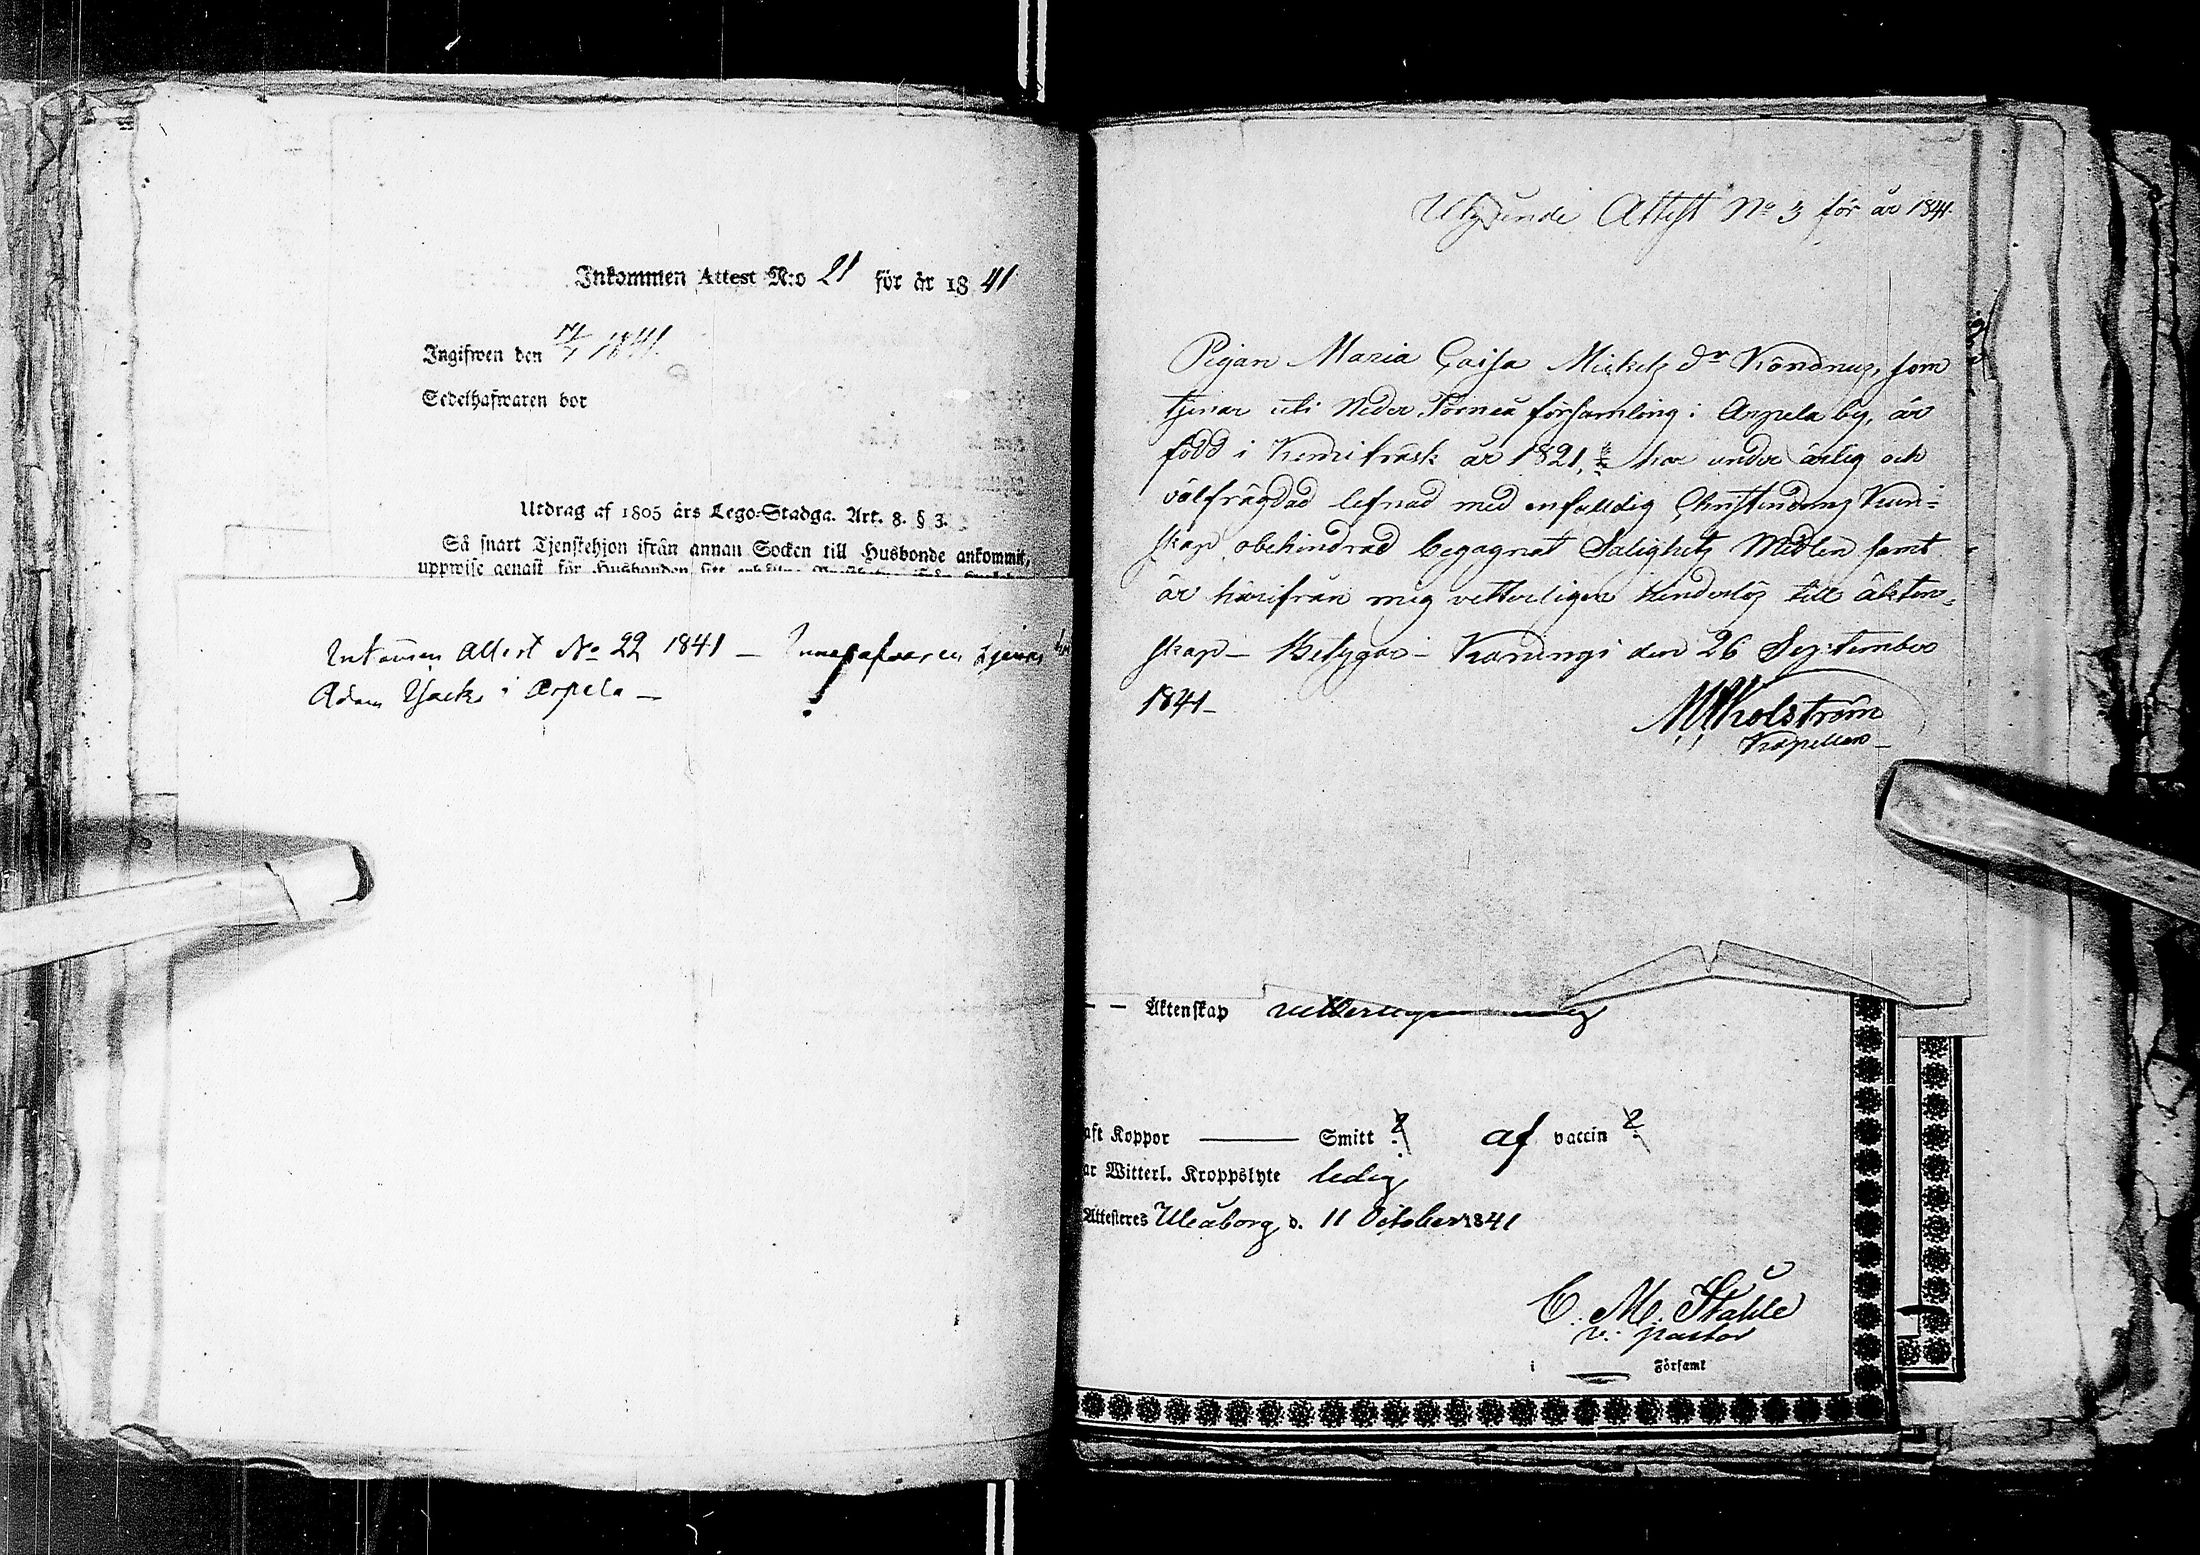 Inkommen Attest N:o 21 för år 1841
Ingifwen den 1841.
Sedelhafwaren bor
Utdrag af 1805 års Lego-Stadga. Art. 8. § 3.
Så snart Tjenstehjon ifrån annan Socken till Husbonde ankommit,
uppwise genast för Husbonden sitt
Inkommen Attest No 22 1841 — Innehafvaren tjenar
Adam i Arpela —
Utgående Attest No 3 för år 1841.
Pigan Maria Caisa Mickels dr Köndnus, som
tjenar uti Neder Torneå församling i Arpela by, är
född i Kemiträsk år 1821, har under ärlig och
välfrägdad lefnad med enfalldig Christendoms Kun-
skap obehindrad begagnat Salighets Medlen samt
är härifrån mig vetterligen hinderlös till äkten-
skap — Betygar — Karungi den 26 September
1841 —
Kapellan —
— — Äktenskap vetterligen
aft Koppor ——— Smitt ? af vaccin ?
ar Witterl. Kroppslyte ledig
Attesteres Uleåborg d. 11 October 1841
C. M. Ståhle
v. pastor
i — Församl